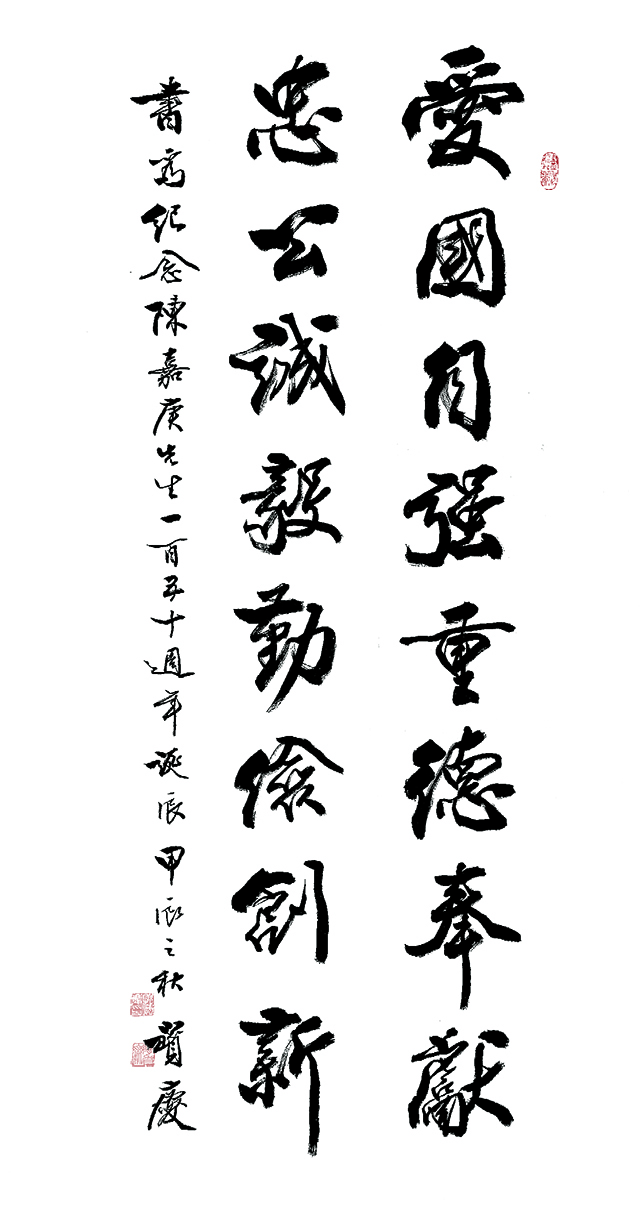 愛國自强重德奉獻
忠公誠毅勤儉創新
書為紀念陳嘉庚先生一百五十週年誕辰甲辰之秋 慶